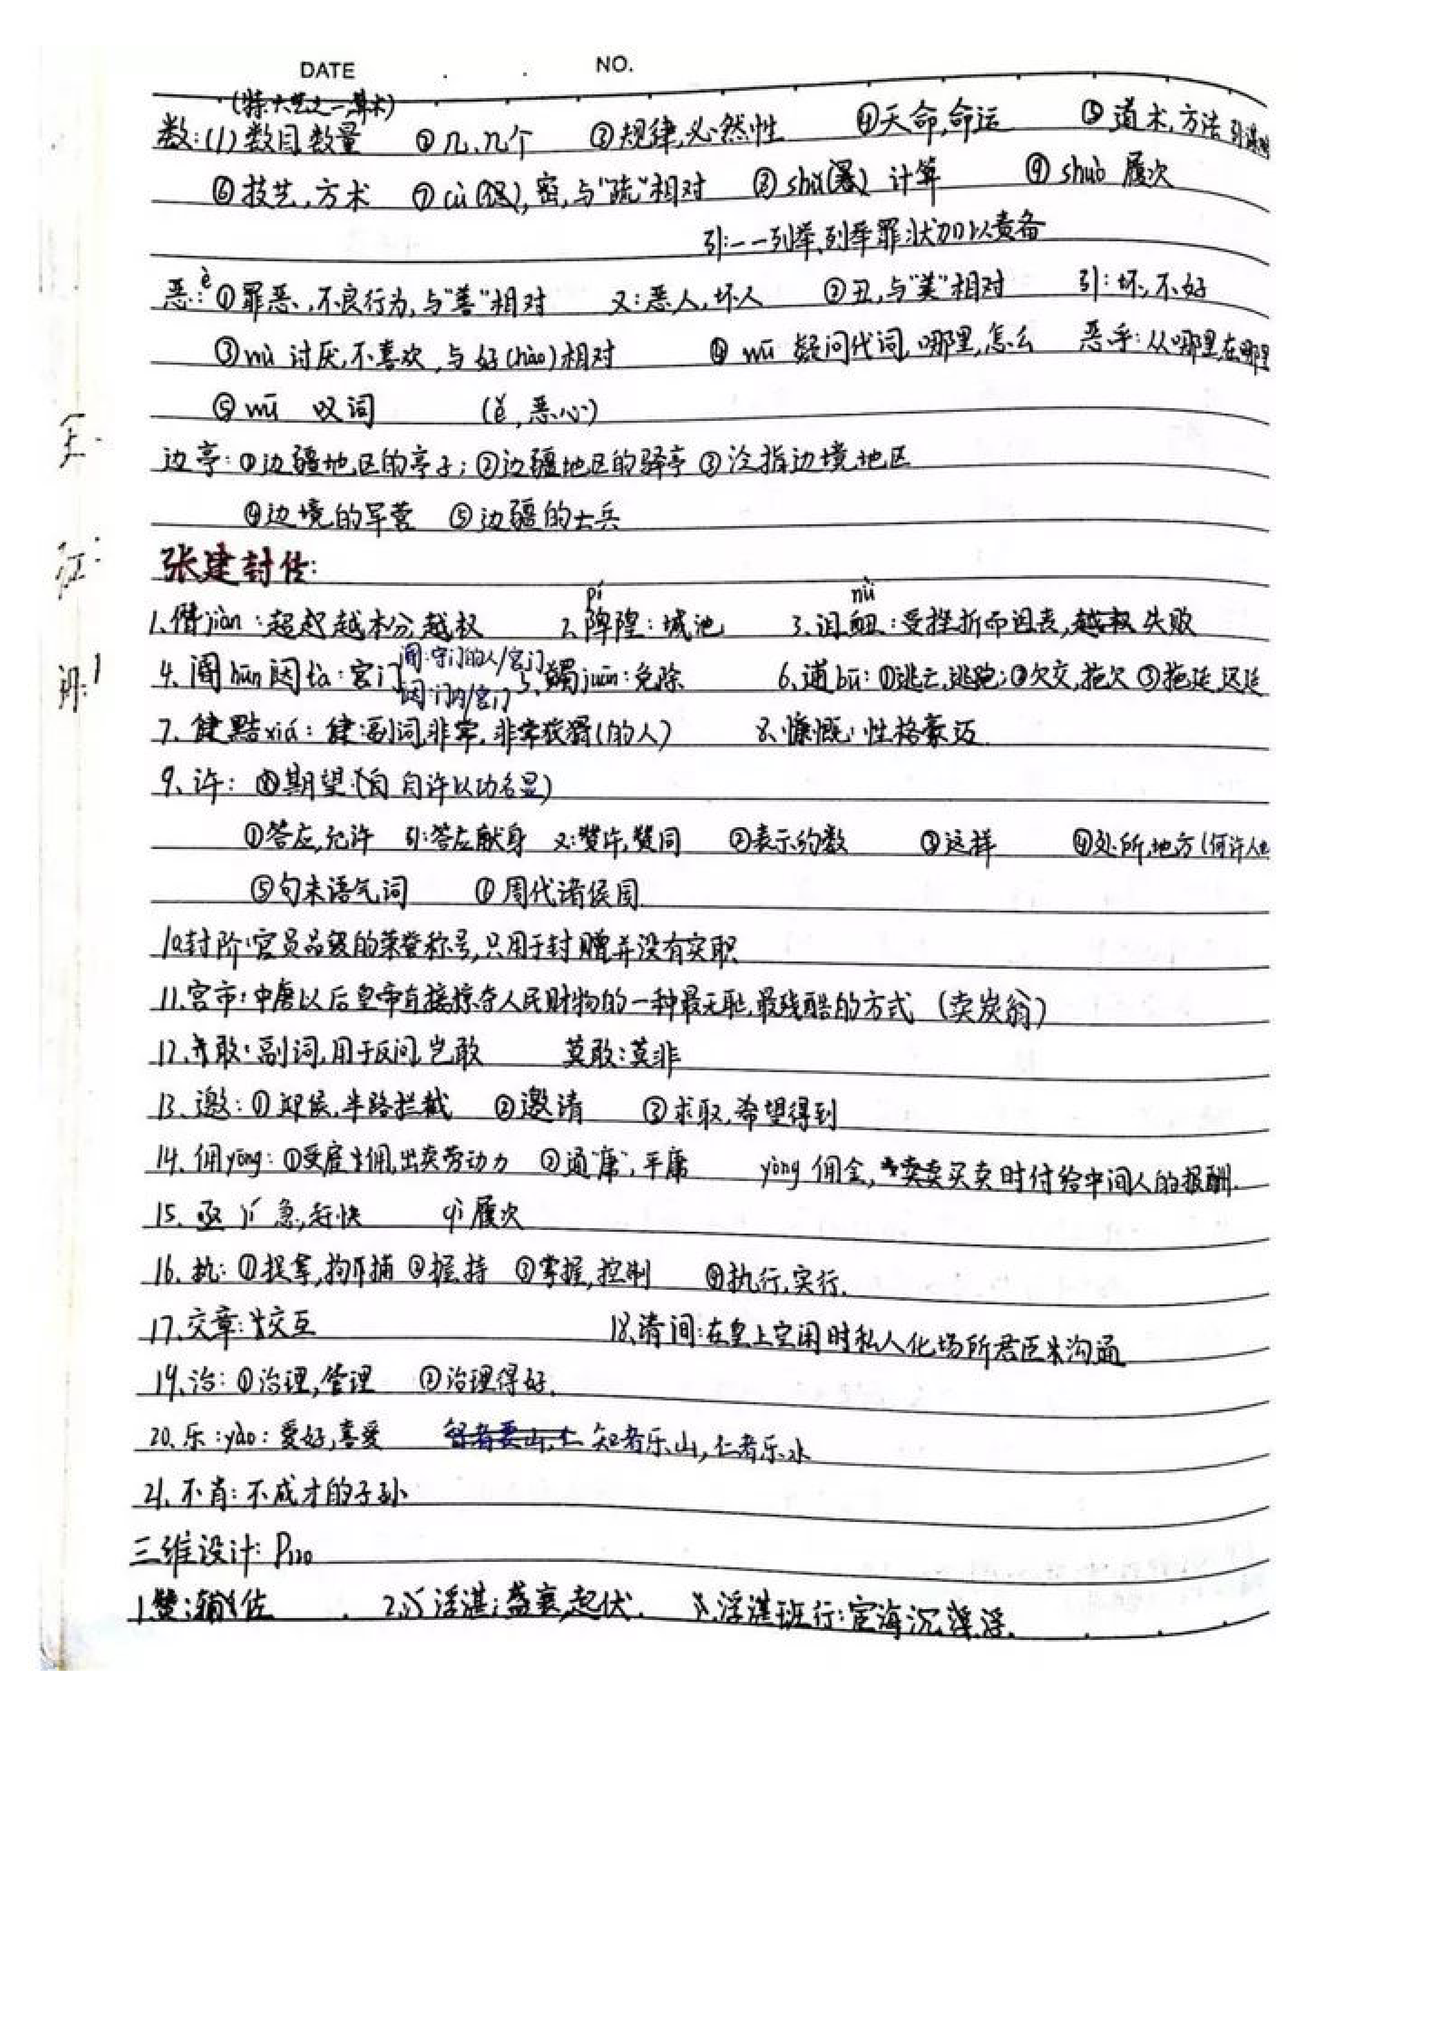 DATE . . NO.
(特六艺之一,算术)
数:(1)数目,数量 ②几、几个 ③规律,必然性 ④天命,命运 ⑤道术,方法
⑥技艺,方术 ⑦cù ,密,与“疏”相对 ⑧shǔ 计算 ⑨shuò 履次
引:一一列举,列举罪状加以责备
恶:è①罪恶,不良行为,与“善”相对 又:恶人,坏人 ②丑,与“美”相对 引:坏,不好
③wù 讨厌,不喜欢,与好(hào)相对 ④wū 疑问代词,哪里,怎么 恶乎:从哪里,在哪里
⑤wū 叹词 (ě,恶心)
边亭:①边疆地区的亭子;②边疆地区的驿亭 ③泛指边境地区
④边境的军营 ⑤边疆的士兵
张建封传:
1.僭jiàn:超越本分,越权 2.陴pí隍:城池 3.沮衄nǜ:受挫折而沮丧,失败
4.阍hūn闼tà:宫门 阍:守门的人/宫门 闼:门内/宫门 5.蠲juān:免除 6.逋bū:①逃亡,逃跑;②欠交,拖欠 ③拖延,迟延
7.健黠xiá:健:副词,非常,非常狡猾(的人) 8.慷慨:性格豪迈.
9.许:⑧期望:(自许以功名显)
①答应,允许 引:答应献身 又:赞许,赞同 ②表示约数 ③这样 ④处所,地方(何许人也
⑤句末语气词 ⑥周代诸侯国
10.封阶:官员品级的荣誉称号,只用于封赠并没有实职
11.宫市:中唐以后皇帝直接掠夺人民财物的一种最无耻,最残酷的方式 (卖炭翁)
12.敢:副词,用于反问,岂敢 莫敢:莫非
13.邀:①迎候,半路拦截 ②邀请 ③求取,希望得到
14.佣yōng:①受雇佣,出卖劳动力 ②通“庸”,平庸 yòng 佣金,买卖时付给中间人的报酬.
15.亟 jí 急,赶快 qì 履次
16.执:①捉拿,拘捕 ②握,持 ③掌握,控制 ④执行,实行.
17.交章:交互 18.请间:在皇上空闲时私人化场所君臣来沟通
19.治:①治理,管理 ②治理得好.
20.乐:yào:爱好,喜爱 知者乐山,仁者乐水
21.不肖:不成才的子孙
三维设计:P120
1.赞:辅佐 2.浮湛:盛衰,起伏. 3.浮湛班行:宦海沉浮.